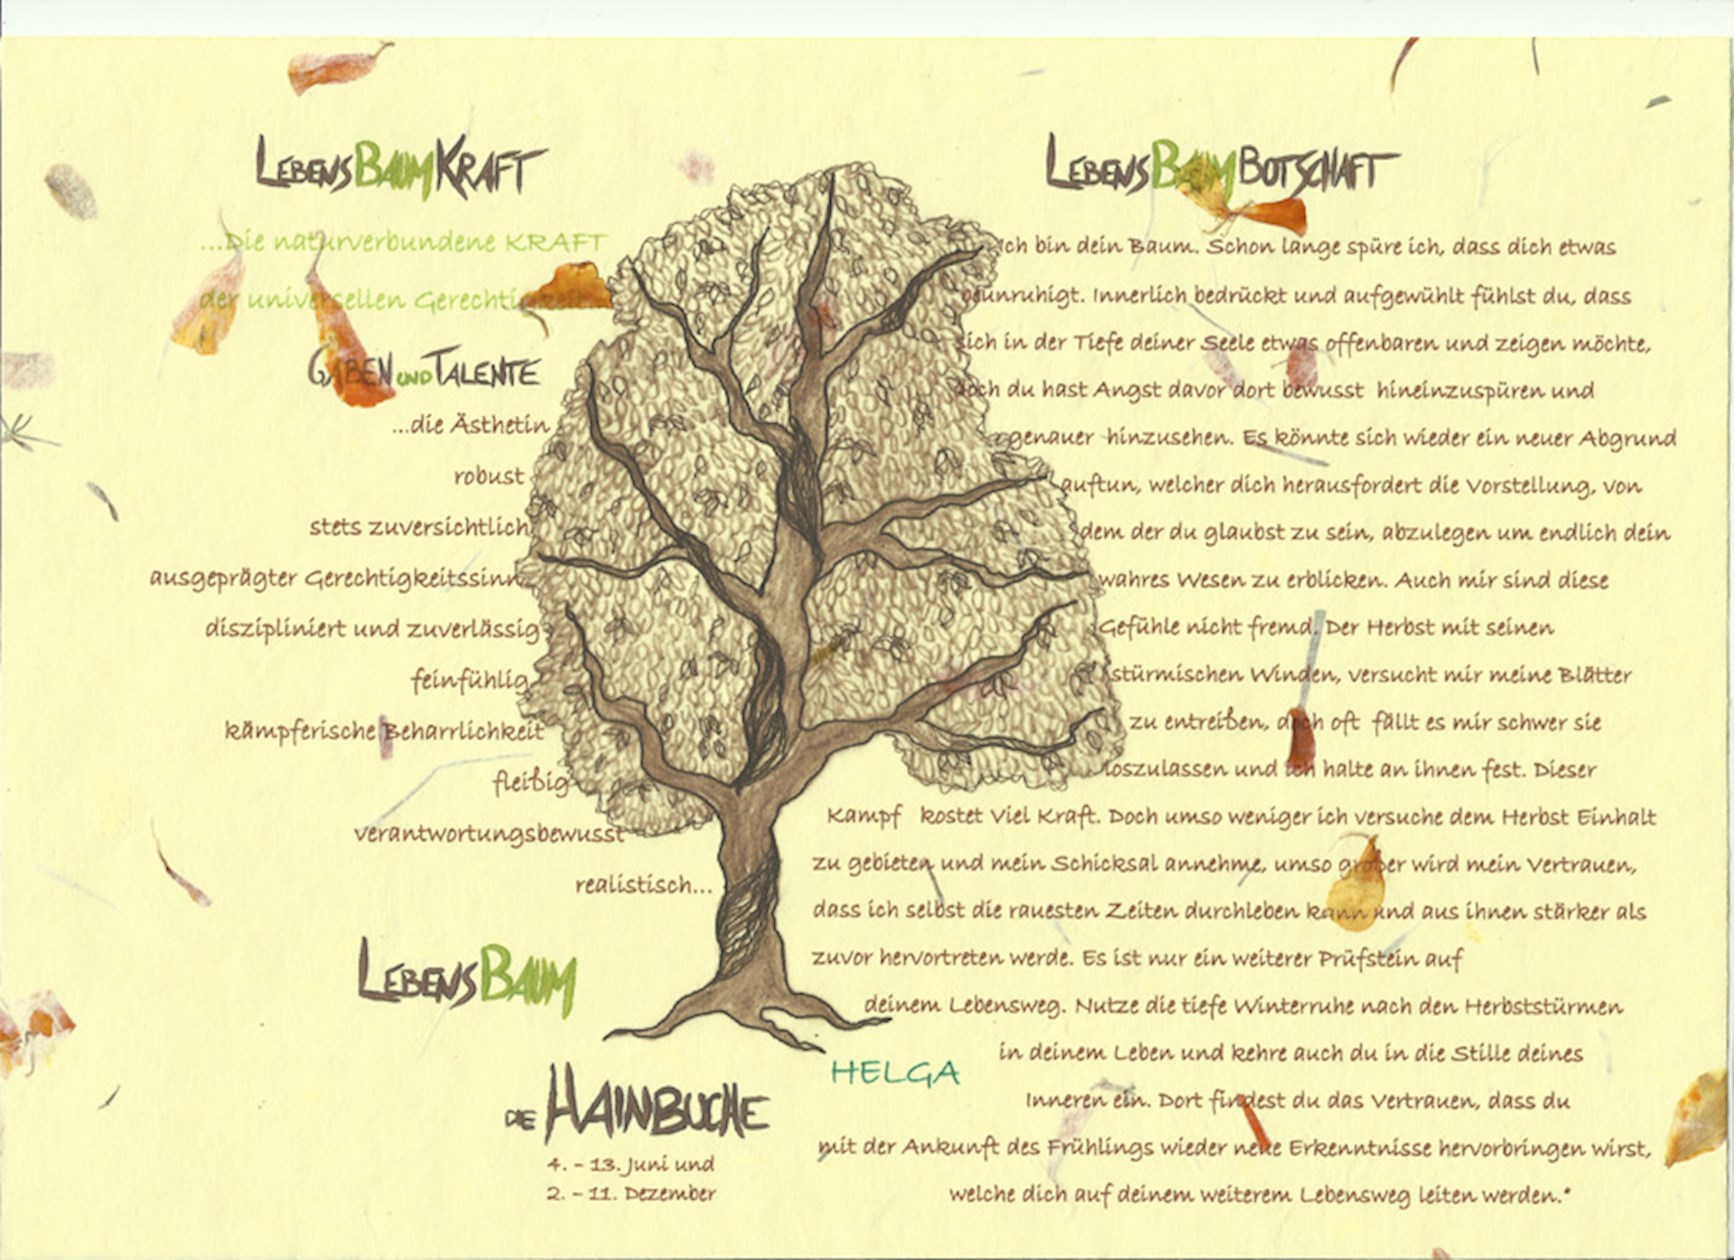 LEBENSBAUMKRAFT
...Die naturverbundene KRAFT
der universellen Gerechtigkeit...
GABEN UND TALENTE
...die Ästhetin
robust
stets zuversichtlich
ausgeprägter Gerechtigkeitssinn
diszipliniert und zuverlässig
feinfühlig
kämpferische Beharrlichkeit
fleißig
verantwortungsbewusst
realistisch...
LEBENSBAUM
DIE HAINBUCHE
4. - 13. Juni und
2. - 11. Dezember
HELGA
LEBENSBAUMBOTSCHAFT
Ich bin dein Baum. Schon lange spüre ich, dass dich etwas
beunruhigt. Innerlich bedrückt und aufgewühlt fühlst du, dass
sich in der Tiefe deiner Seele etwas offenbaren und zeigen möchte,
doch du hast Angst davor dort bewusst hineinzuspüren und
genauer hinzusehen. Es könnte sich wieder ein neuer Abgrund
auftun, welcher dich herausfordert die Vorstellung, von
dem der du glaubst zu sein, abzulegen um endlich dein
wahres Wesen zu erblicken. Auch mir sind diese
Gefühle nicht fremd. Der Herbst mit seinen
stürmischen Winden, versucht mir meine Blätter
zu entreißen, doch oft fällt es mir schwer sie
loszulassen und ich halte an ihnen fest. Dieser
Kampf kostet Viel Kraft. Doch umso weniger ich versuche dem Herbst Einhalt
zu gebieten und mein Schicksal annehme, umso großer wird mein Vertrauen,
dass ich selbst die rauesten Zeiten durchleben kann und aus ihnen stärker als
zuvor hervortreten werde. Es ist nur ein weiterer Prüfstein auf
deinem Lebensweg. Nutze die tiefe Winterruhe nach den Herbststürmen
in deinem Leben und kehre auch du in die Stille deines
Inneren ein. Dort findest du das Vertrauen, dass du
mit der Ankunft des Frühlings wieder neue Erkenntnisse hervorbringen wirst,
welche dich auf deinem weiterem Lebensweg leiten werden.*